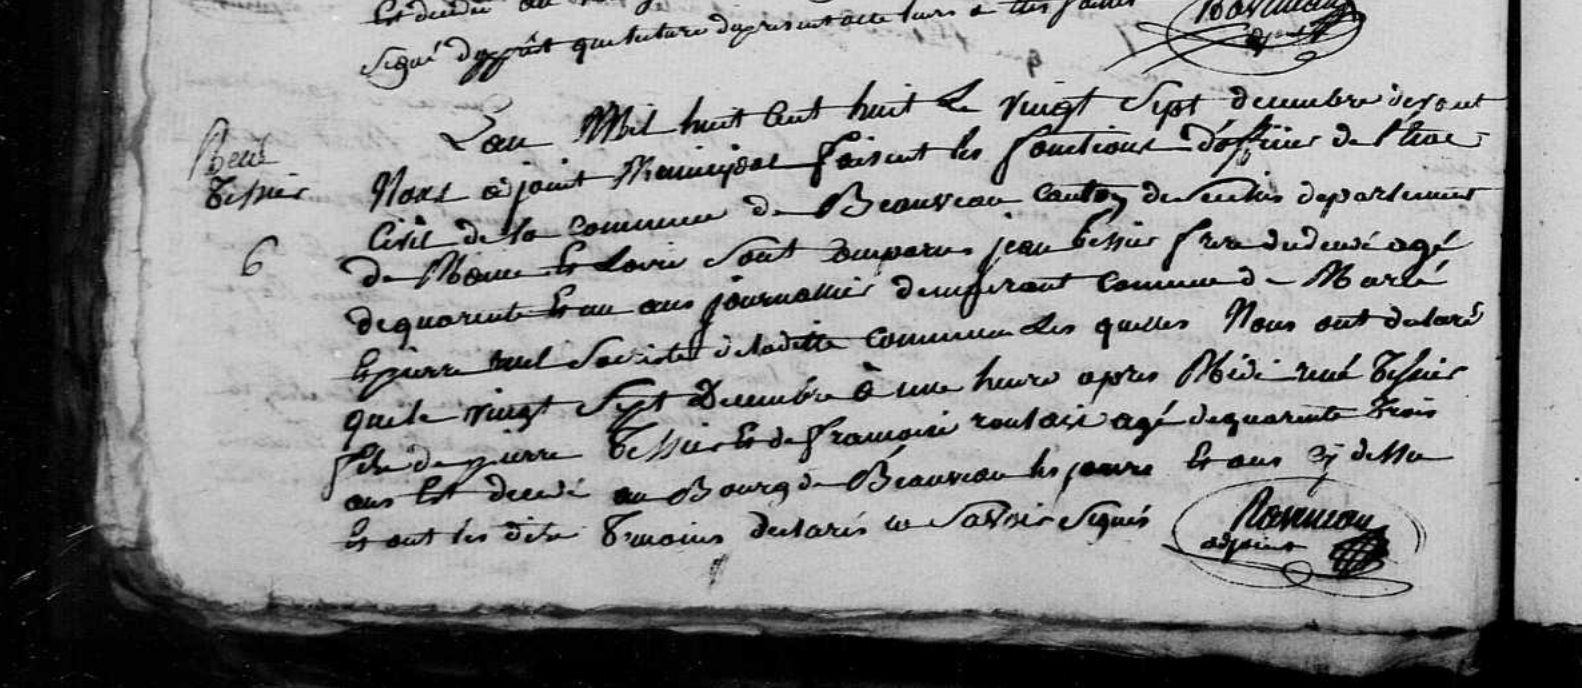 Est décédé au
signé d'apprêt que lecture du present acte leurs a été faitte
Ravineau
adjoint
René
Tessier
6
L'an Mil huit Cent huit Le vingt Sept decembre devant
Nous adjoint Municipal faisant les fonctions d'officier de l'état
Civil de la commune de Beauveau canton de Seiches departement
de Maine Et Loire Sont Comparus jean tessier frere du decedé agé
de quarente Et un ans journallier demeurant Commune de Marcé
Et pierre de laditte commune Les quelles Nous ont declaré
que le vingt Sept Decembre à une heure apres Midi rené tessier
fils de pierre Tessier Et de francoise agé de quarente trois
ans Est decedé au Bourg de Beauveau les jours Et ans cy dessu
Et ont les dits Temoins declarés ne Savoir Signés
Ravineau
adjoint